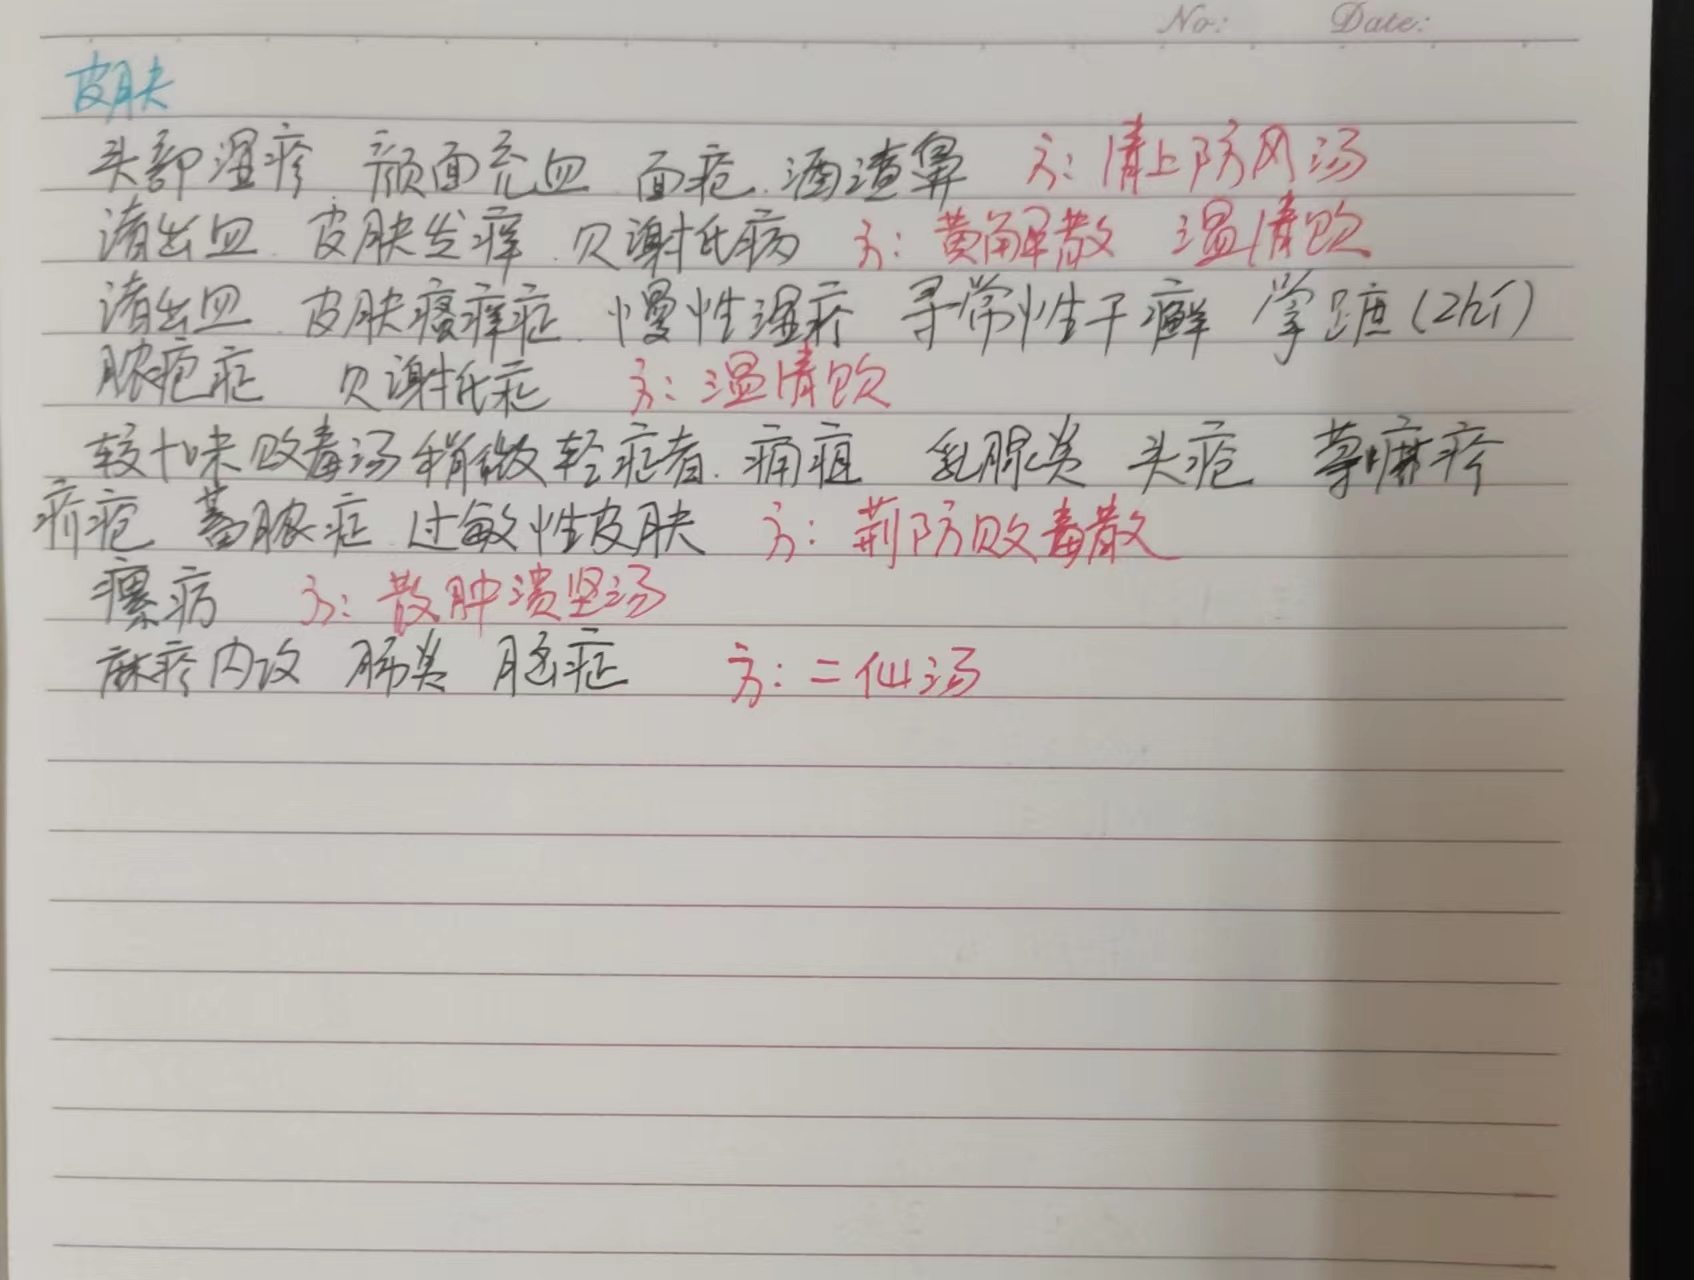 No: Date:
皮肤
头部湿疹 颜面充血 面疱 酒渣鼻 方：清上防风汤
诸出血 皮肤发痒 贝谢托病 方：黄解散 温清饮
诸出血 皮肤瘙痒症 慢性湿疹 寻常性干癣 掌跖(zhí)
脓疱症 贝谢托症 方：温清饮
较十味败毒汤稍微轻症者 痈疽 乳腺炎 头疮 荨麻疹
疥疮 蓄脓症 过敏性皮肤 方：荆防败毒散
瘰疬 方：散肿溃坚汤
麻疹内攻 肺炎 脑症 方：二仙汤